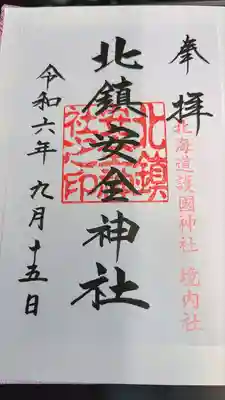 奉拝
北海道護國神社 境内社
北鎮安全神社
北鎮安全神社之印
令和六年九月十五日